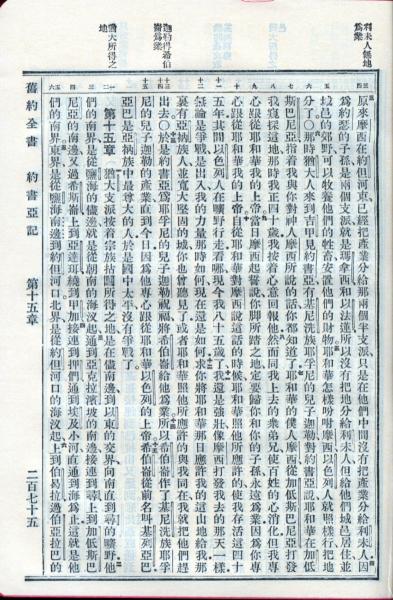 利未人無地為業
迦勒得希伯崙為業
猶大所得之地
原來摩西在約但河東已經把產業分給那兩個半支派只是在他們中間沒有把產業分給利未人因
為約瑟的子孫是兩個支派就是瑪拿西和以法蓮所以沒有把地分給利未人但給他們城邑居住並
城邑的郊野可以牧養他們的牲畜安置他們的財物耶和華怎樣吩咐摩西以色列人就照樣行把地
分了○那時猶大人來到吉甲見約書亞有基尼洗族耶孚尼的兒子迦勒對約書亞說耶和華在加低
斯巴尼亞指着我與你對神人摩西所說的話你都知道了耶和華的僕人摩西從加低斯巴尼亞打發
我窺探這地那時我正四十歲我按着心意回報他然而同我上去的眾弟兄使百姓的心消化但我專
心跟從耶和華我的上帝當日摩西起誓說你腳所踏之地定要歸你和你的子孫永遠為業因為你專
心跟從耶和華我的上帝自從耶和華對摩西說這話的時候耶和華照他所應許的使我存活這四十
五年其間以色列人在曠野行走看哪現今我八十五歲了我還是強壯像摩西打發我去的那天一樣
無論是爭戰是出入我的力量那時如何現在還是如何求你將耶和華那日應許我的這山地給我那
裏有亞衲族人並寬大堅固的城你也曾聽見了或者耶和華照他所應許的與我同在我就把他們趕
出去○於是約書亞為耶孚尼的兒子迦勒祝福將希伯崙給他為業所以希伯崙作了基尼洗族耶孚
尼的兒子迦勒的產業直到今日因為他專心跟從耶和華以色列的上帝希伯崙從前名叫基列亞巴
亞巴是亞衲族中最尊大的人於是國中太平沒有爭戰了
第十五章 猶大支派按着宗族拈鬮所得之地是在儘南邊到以東的交界向南直到尋的曠野他
們的南界是從鹽海的儘邊就是從朝南的海汊起通到亞克拉濱坡的南邊接連到尋上到加低斯巴
尼亞的南邊又過希斯崙上到亞達珥繞到甲加接連到押們通到埃及小河直通到海為止這就是他
們的南界東界是從鹽海南邊到約但河口北界是從約但河口的海汊起上到伯曷拉過伯亞拉巴的
舊約全書 約書亞記 第十五章 二百七十五